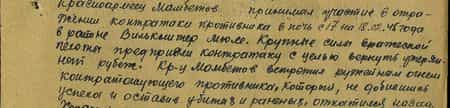 Красноармеец Мамбетов принимал участие в отра-
жении контратаки противника в ночь с 17 на 18.02.45 года
в районе Вильконтер Мюле. Крупные силы вражеской
пехоты предприняли контратаку с целью вернуть утерян-
ный рубеж. Кр-ц Мамбетов встретил ружейным огнем
контратакующего противника, который, не добившись
успеха и оставив убитых и раненых, откатился назад.